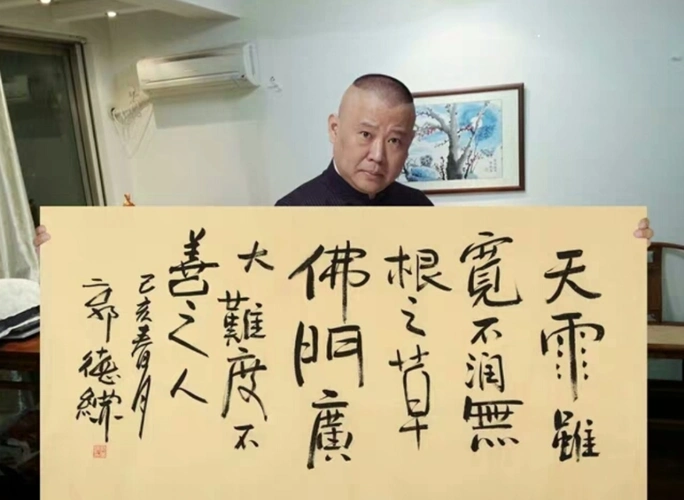 天雨雖
寛不润無
根之草
佛門廣
大難度不
善之人
己亥春月
郭德纲